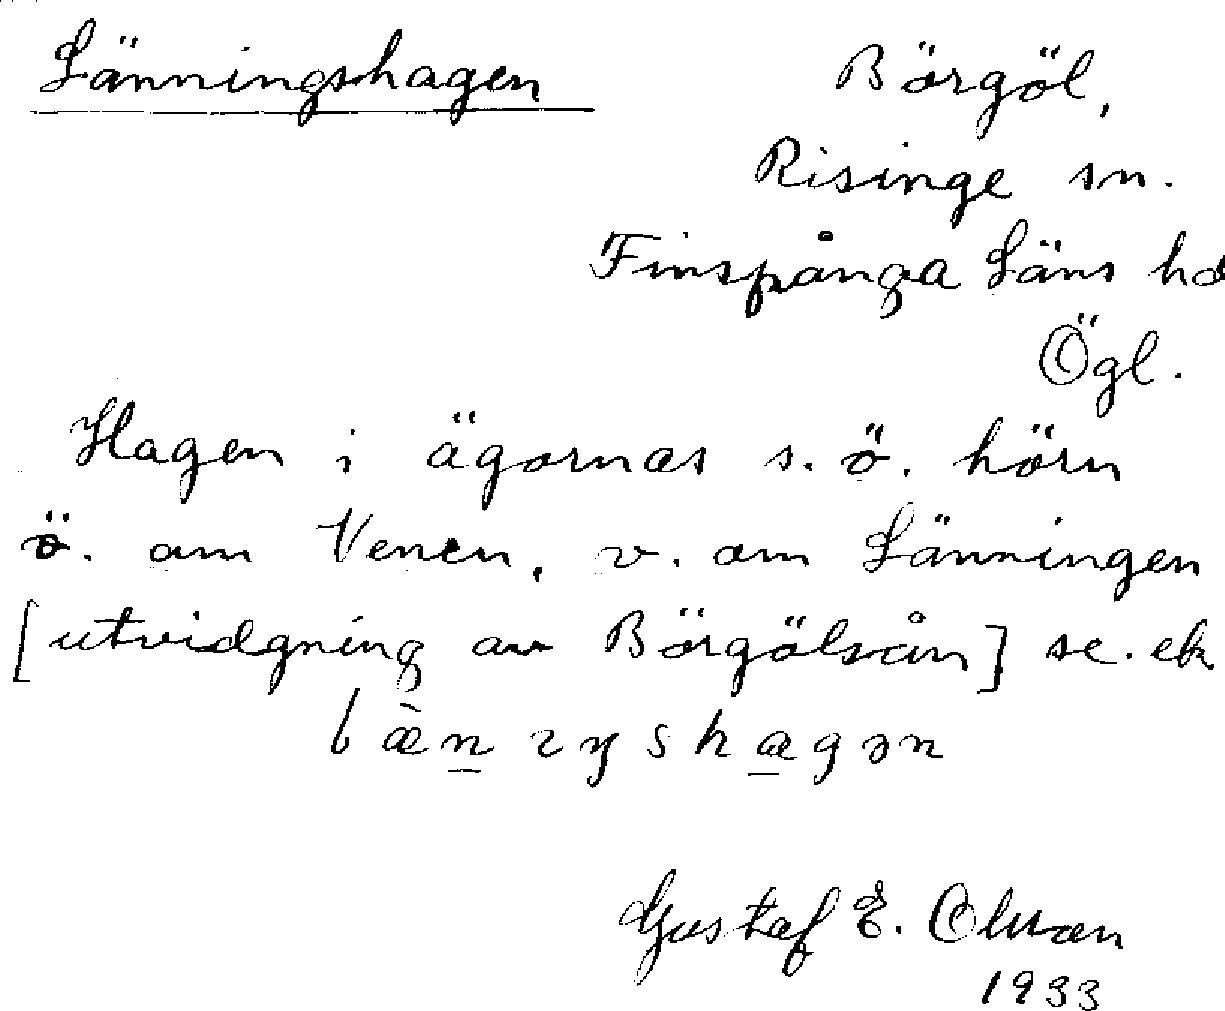 Länningshagen
Börgöl,
Risinge sn.
Finspånga Läns hd
Ögl.
Hagen i ägornas s.ö. hörn
ö. om Venen, v. om Länningen
[utvidgning av Börgölsån] se. ek
Gustaf E.
1933